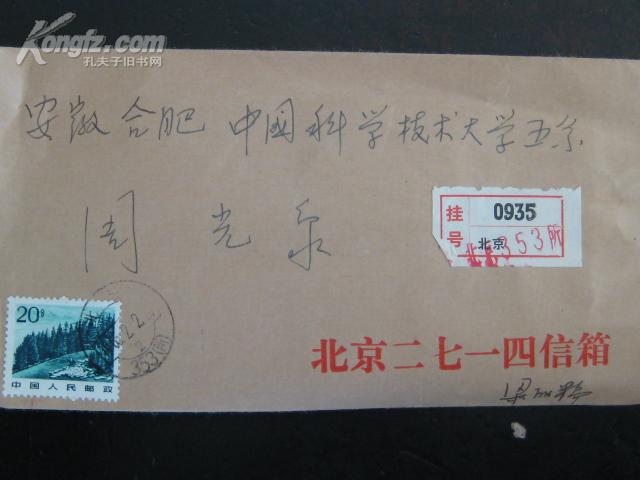 Kongfz.com
孔夫子旧书网
安徽合肥 中国科学技术大学五系
周光泉
挂号 0935
北京
北京353所
20分
中国人民邮政
353(所)
北京二七一四信箱